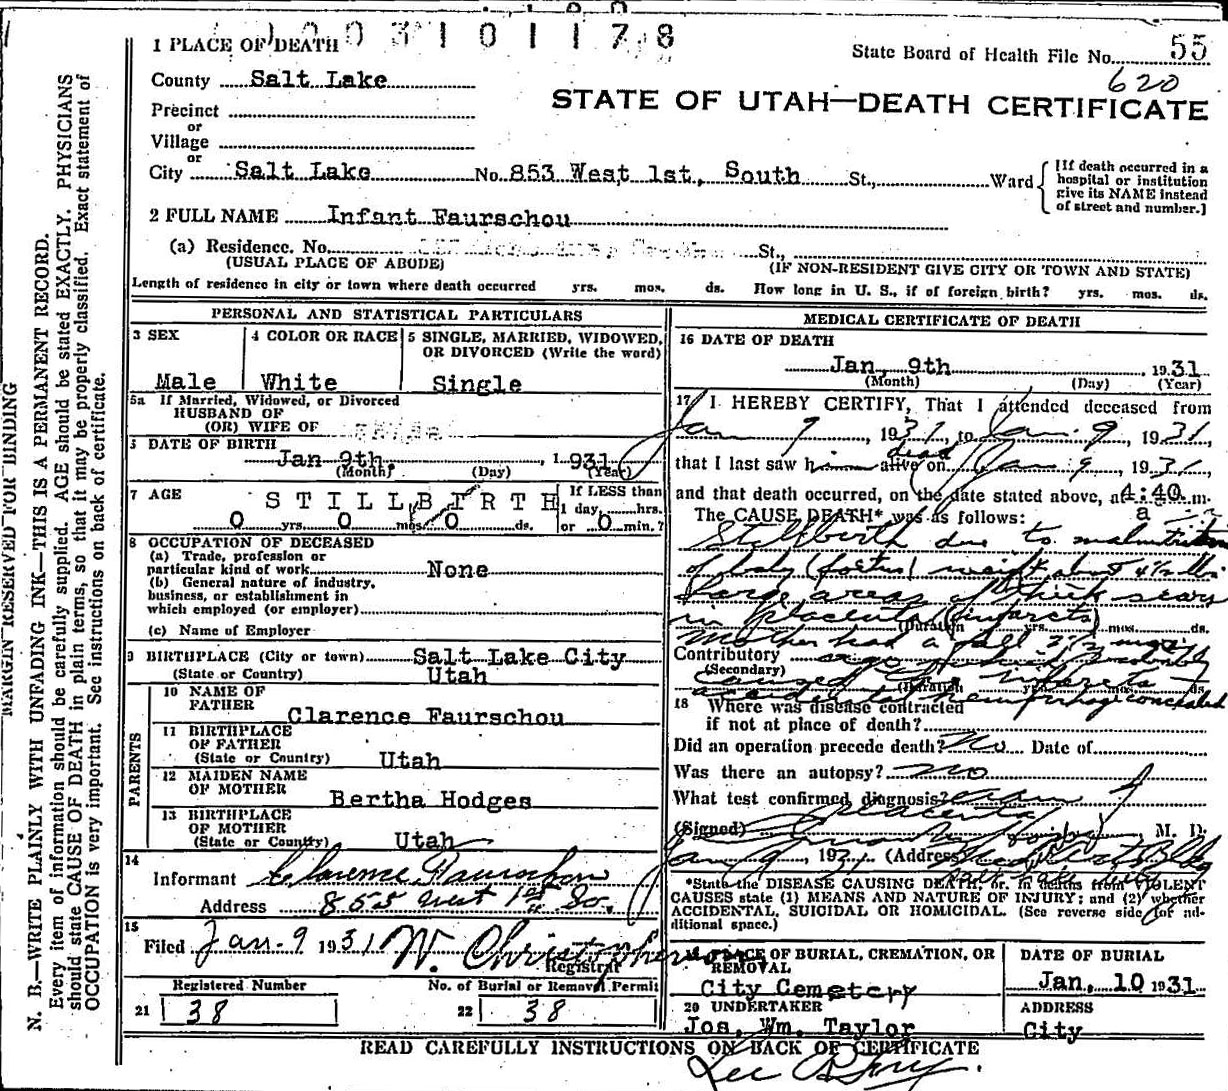 1003101178
State Board of Health File No. 55
620
1 PLACE OF DEATH
County Salt Lake
STATE OF UTAH—DEATH CERTIFICATE
Precinct
or
Village
or
City Salt Lake No. 853 West 1st, South St., Ward
[If death occurred in a
hospital or institution
give its NAME instead
of street and number.]
2 FULL NAME Infant Faurschou
(a) Residence. No. St.,
(USUAL PLACE OF ABODE) (IF NON-RESIDENT GIVE CITY OR TOWN AND STATE)
Length of residence in city or town where death occurred yrs. mos. ds. How long in U. S., if of foreign birth? yrs. mos. ds.
PERSONAL AND STATISTICAL PARTICULARS
3 SEX
Male
4 COLOR OR RACE
White
5 SINGLE, MARRIED, WIDOWED,
OR DIVORCED (Write the word)
Single
5a If Married, Widowed, or Divorced
HUSBAND OF
(OR) WIFE OF
DATE OF BIRTH
Jan 9th, 1931
(Month) (Day) (Year)
7 AGE
STILLBIRTH
0 yrs. 0 mos. 0 ds.
If LESS than
1 day, hrs.
or 0 min.?
8 OCCUPATION OF DECEASED
(a) Trade, profession or
particular kind of work None
(b) General nature of industry,
business, or establishment in
which employed (or employer)
(c) Name of Employer
9 BIRTHPLACE (City or town) Salt Lake City
(State or Country) Utah
PARENTS
10 NAME OF
FATHER
Clarence Faurschou
11 BIRTHPLACE
OF FATHER
(State or Country) Utah
12 MAIDEN NAME
OF MOTHER
Bertha Hodges
13 BIRTHPLACE
OF MOTHER
(State or Country) Utah
14
Informant Clarence Faurschou
Address 853 West 1st So.
15
Filed Jan-9 1931 W. Christopherson
Registrar
Registered Number
21 38
No. of Burial or Removal Permit
22 38
MEDICAL CERTIFICATE OF DEATH
16 DATE OF DEATH
Jan, 9th 1931
(Month) (Day) (Year)
17 I HEREBY CERTIFY, That I attended deceased from
Jan 9, 1931, to Jan. 9, 1931
dead
that I last saw him alive on Jan 9, 1931,
and that death occurred, on the date stated above, at 4:40 a m.
The CAUSE DEATH* was as follows:
Stillbirth due to malnutrition
of baby (foetus) weight about 4½ lbs.
Large areas of thick scars
in placenta (infarcts)
(Duration yrs. mos. ds.
Mother had a fall 3½ mos
Contributory ago which probably
(Secondary)
caused the infarcts
(Duration yrs. ds.
hemorrhage concealed
18 Where was disease contracted
if not at place of death?
Did an operation precede death? No Date of
Was there an autopsy? no
What test confirmed diagnosis? exam of
placenta
(Signed) , M. D.
Jan 9, 1931 (Address)
Salt Lake City
*State the DISEASE CAUSING DEATH, or, in deaths from VIOLENT
CAUSES state (1) MEANS AND NATURE OF INJURY; and (2) whether
ACCIDENTAL, SUICIDAL OR HOMICIDAL. (See reverse side for ad-
ditional space.)
PLACE OF BURIAL, CREMATION, OR
REMOVAL
City Cemetery
DATE OF BURIAL
Jan, 10 1931
20 UNDERTAKER
Jos. Wm. Taylor
ADDRESS
City
READ CAREFULLY INSTRUCTIONS ON BACK OF CERTIFICATE
MARGIN RESERVED FOR BINDING
N. B.—WRITE PLAINLY WITH UNFADING INK—THIS IS A PERMANENT RECORD.
Every item of information should be carefully supplied. AGE should be stated EXACTLY. PHYSICIANS
should state CAUSE OF DEATH in plain terms, so that it may be properly classified. Exact statement of
OCCUPATION is very important. See instructions on back of certificate.